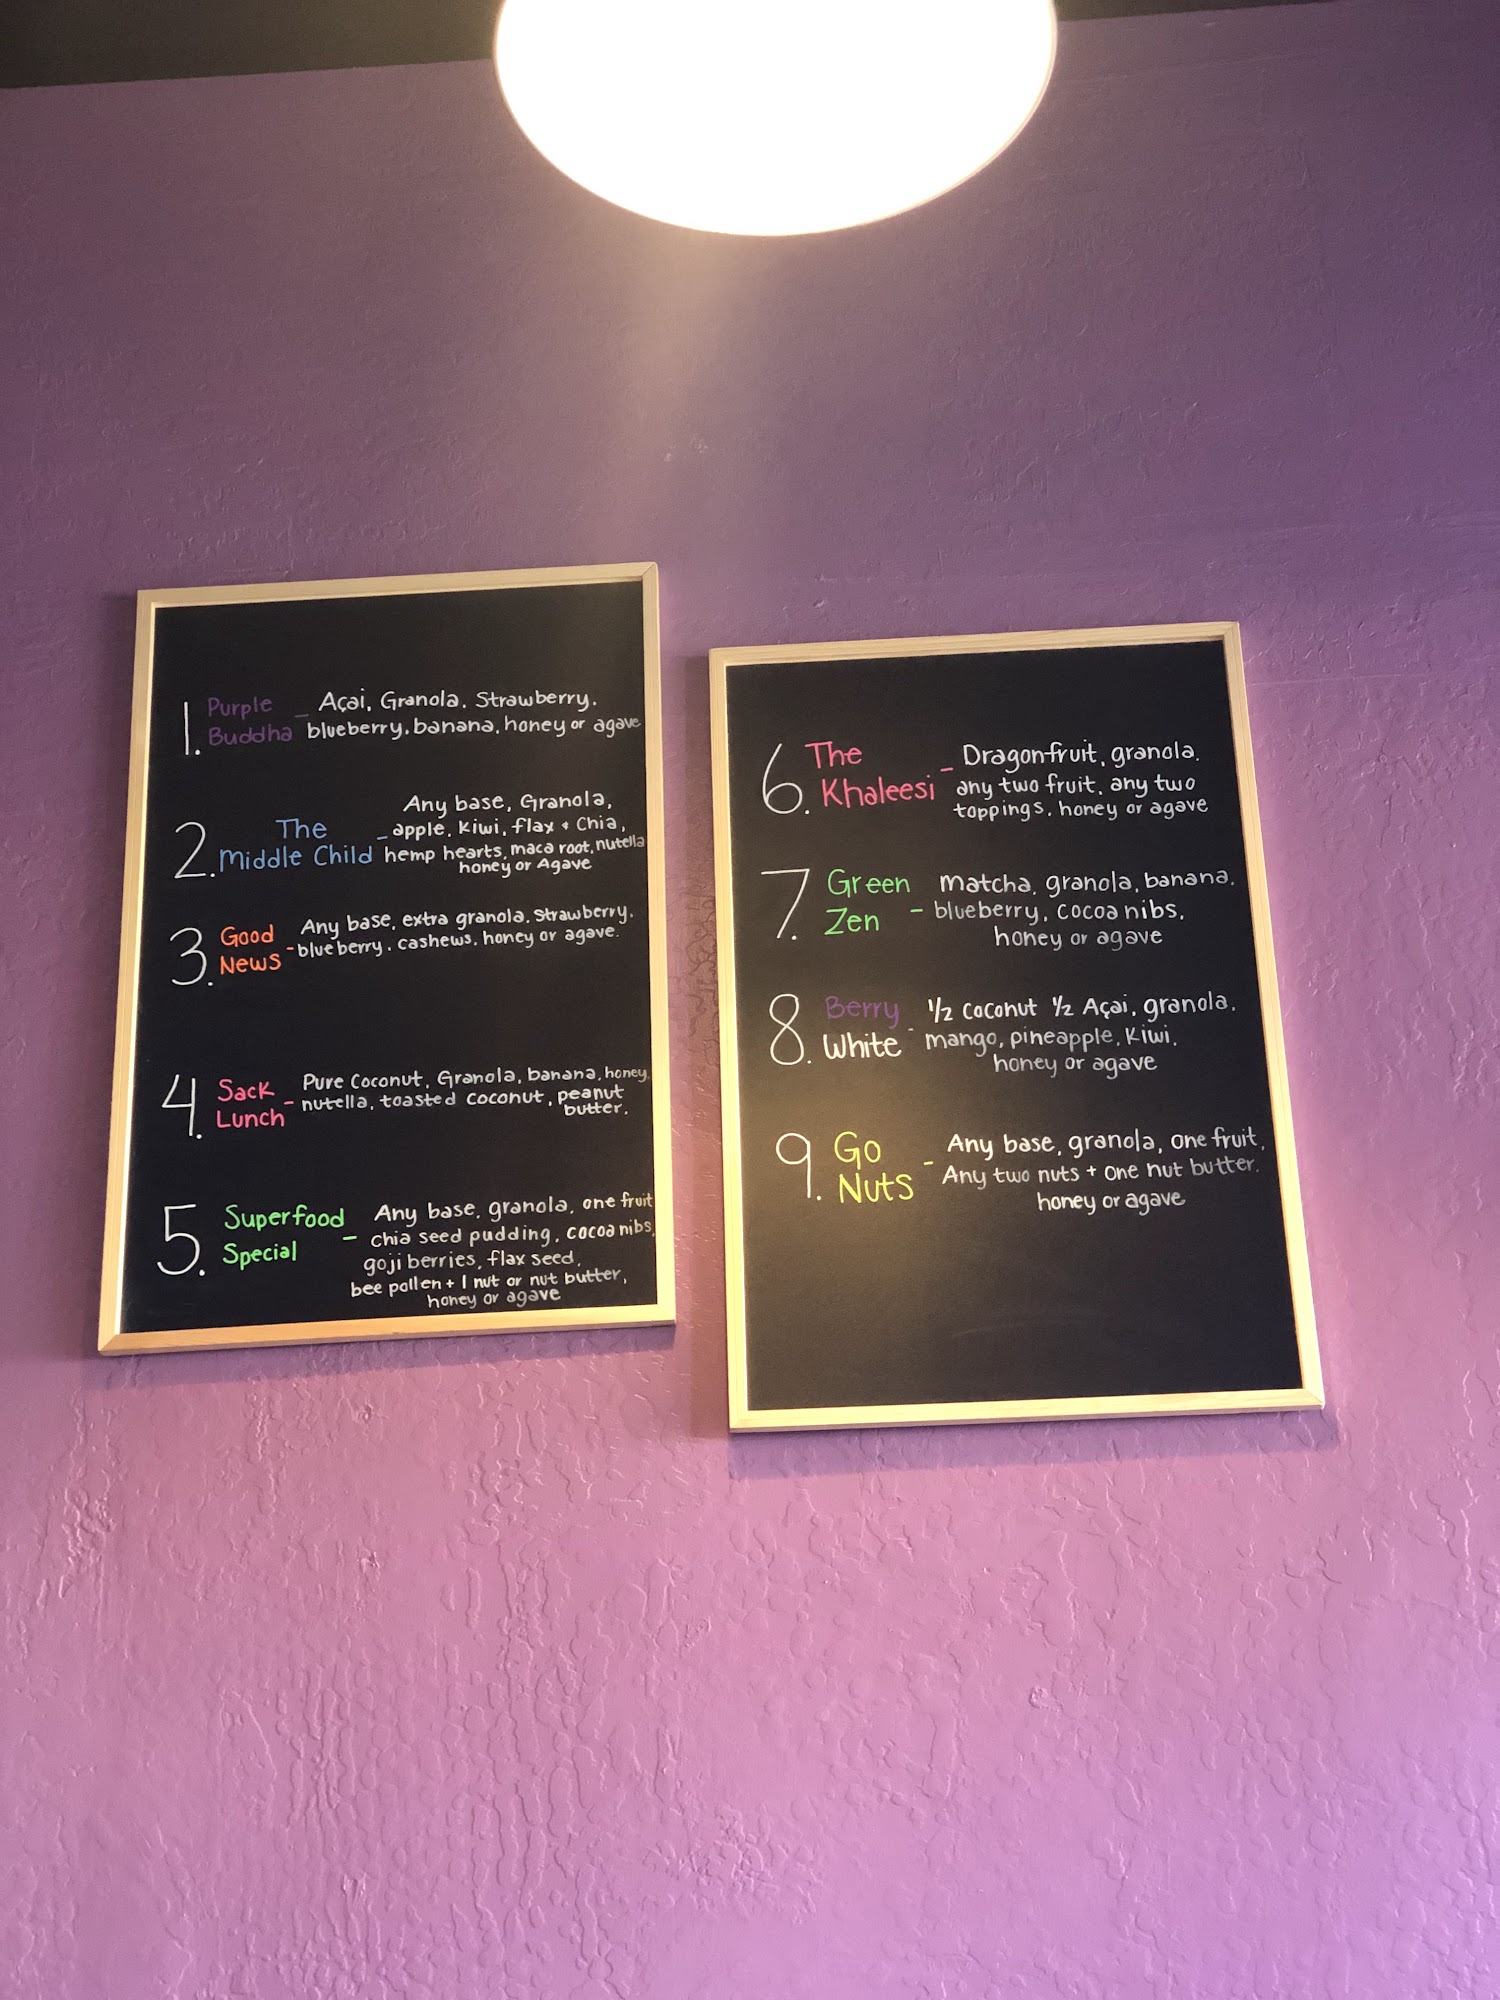 1. Purple Buddha - Açai, Granola, Strawberry,
blueberry, banana, honey or agave
2. The Middle Child - Any base, Granola,
apple, kiwi, flax + Chia,
hemp hearts, maca root, nutella
honey or Agave
3. Good News - Any base, extra granola, strawberry,
blueberry, cashews, honey or agave.
4. Sack Lunch - Pure Coconut, Granola, banana, honey,
nutella, toasted coconut, peanut
butter.
5. Superfood Special - Any base, granola, one fruit
chia seed pudding, cocoa nibs,
goji berries, flax seed,
bee pollen + 1 nut or nut butter,
honey or agave
6. The Khaleesi - Dragonfruit, granola,
any two fruit, any two
toppings, honey or agave
7. Green Zen - matcha, granola, banana,
blueberry, cocoa nibs,
honey or agave
8. Berry White - 1/2 coconut 1/2 Açai, granola,
mango, pineapple, kiwi,
honey or agave
9. Go Nuts - Any base, granola, one fruit,
Any two nuts + one nut butter,
honey or agave